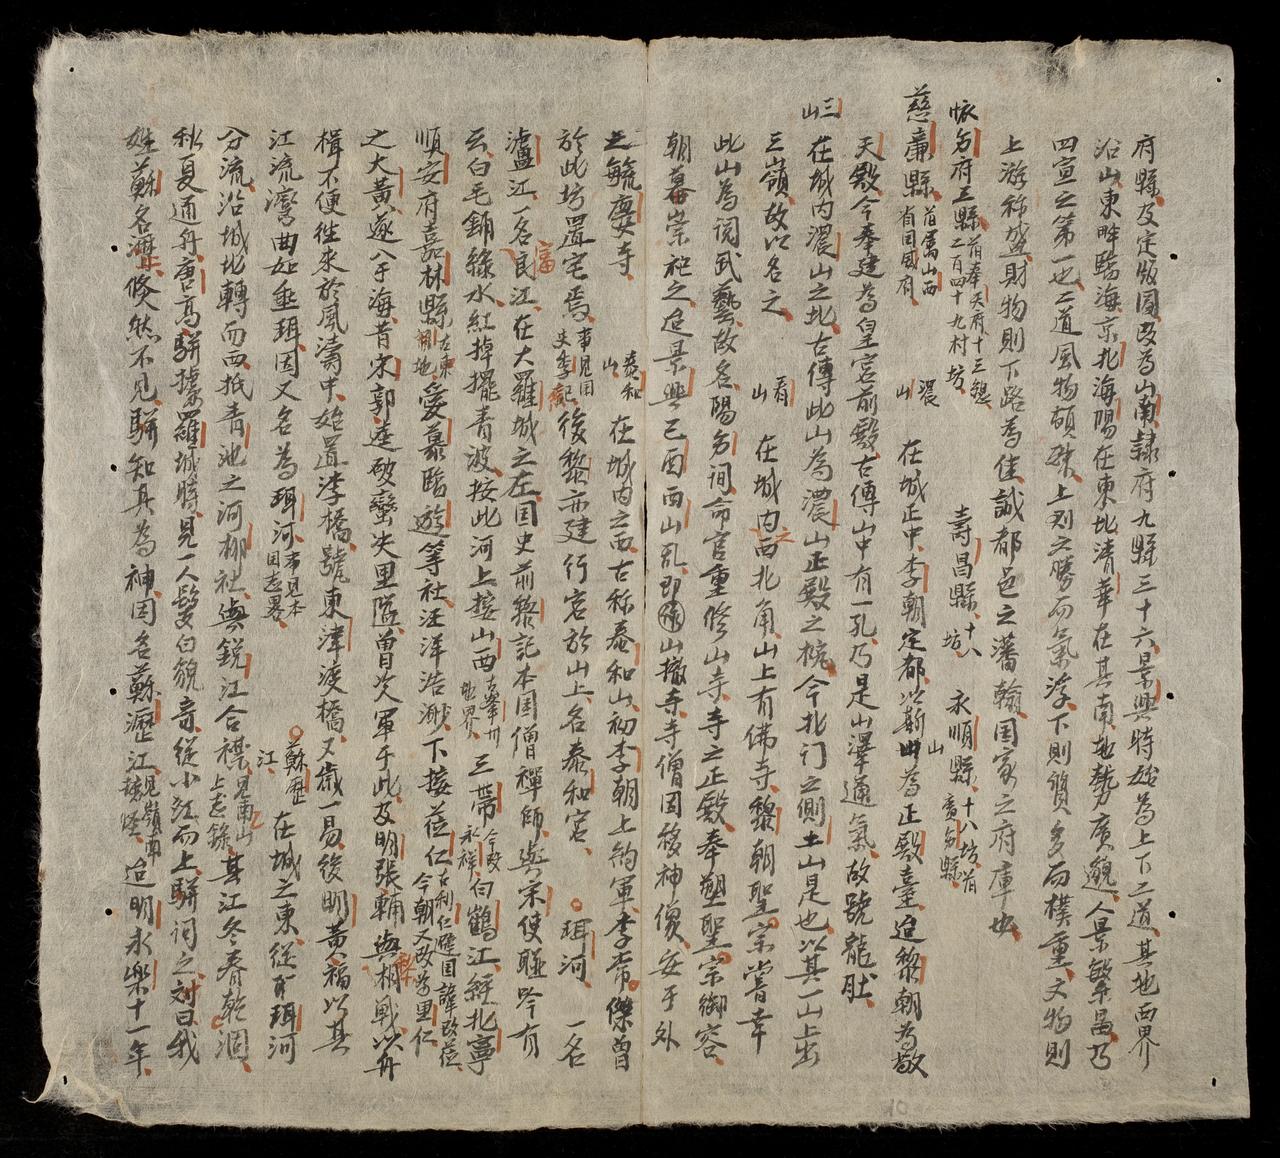 府縣及定版圖改為山南隸府九縣三十六景興時始為上下二道其地西界
沿山東畔臨海京北海陽在東北清華在其南地勢廣邈人景繁昌乃
四宣之第一也二道風物頓殊上則之勝而氣浮下則質多而樸重文物則
上游称盛財物則下路為佳誠都邑之藩翰国家之府庫也
懷分府三縣 前奉天府十三總二百四十九村坊 壽昌縣 十八坊 永順縣 十八坊前廣分縣
慈廉縣 前属山西省国威府 濃山 在城正中李朝定都以斯山為正殿臺迨黎朝為敬
天殿今奉建為皇宮前殿古傳山中有一孔乃是山澤通氣故號龍肚
三山 在城内濃山之北古傳此山為濃山正殿之枕今北门之側土山是也以其一山出
三嶺故以名之 看山 在城内之西北角山上有佛寺黎朝聖宗嘗幸
此山為閱武藝故名陽分詞命官重修山寺寺之正殿奉塑聖宗御容
朝暮崇祀之迨景興己酉西山乱即山撤寺寺僧因移神像安于外
之毓慶寺 泰和山 在城内之西古称泰和山初李朝上鈞軍李常傑曽
於此坊置宅焉 事見国史李記 後黎亦建行宮於山上名泰和宮 珥河 一名
瀘江一名良江在大羅城之左国史前黎記本国僧禪師與宋使聯吟有
云白毛鋪綠水紅掉擺青波按此河上接山西 古峯州地界 三帶 今改永祥 白鶴江經北寧
順安府嘉林縣 古東地 愛慕臨遊等社汪洋浩渺下接莅仁 古利仁避国諱改莅今朝又改為里仁
之大黄遂入于海昔宋郭逵破蠻决里隘曽次軍于此及明張輔與相戰以舟
楫不便徃來於風濤中始置浮橋號東津渡橋又歲一易後明黄福以其
江流灣曲如垂珥因又名為珥河 事見本国志畧 蘇瀝江 在城之東從珥河
分流沿城北轉而西抵青池之河柳社與銳江合襟 見南山上志錄 其江冬春乾涸
秋夏通舟唐高駢據羅城時見一人髮白貌竒從小江而上駢詞之对曰我
姓蘇名瀝倏然不見駢知其為神因名蘇瀝江 見嶺南摭怪 迨明永樂十一年